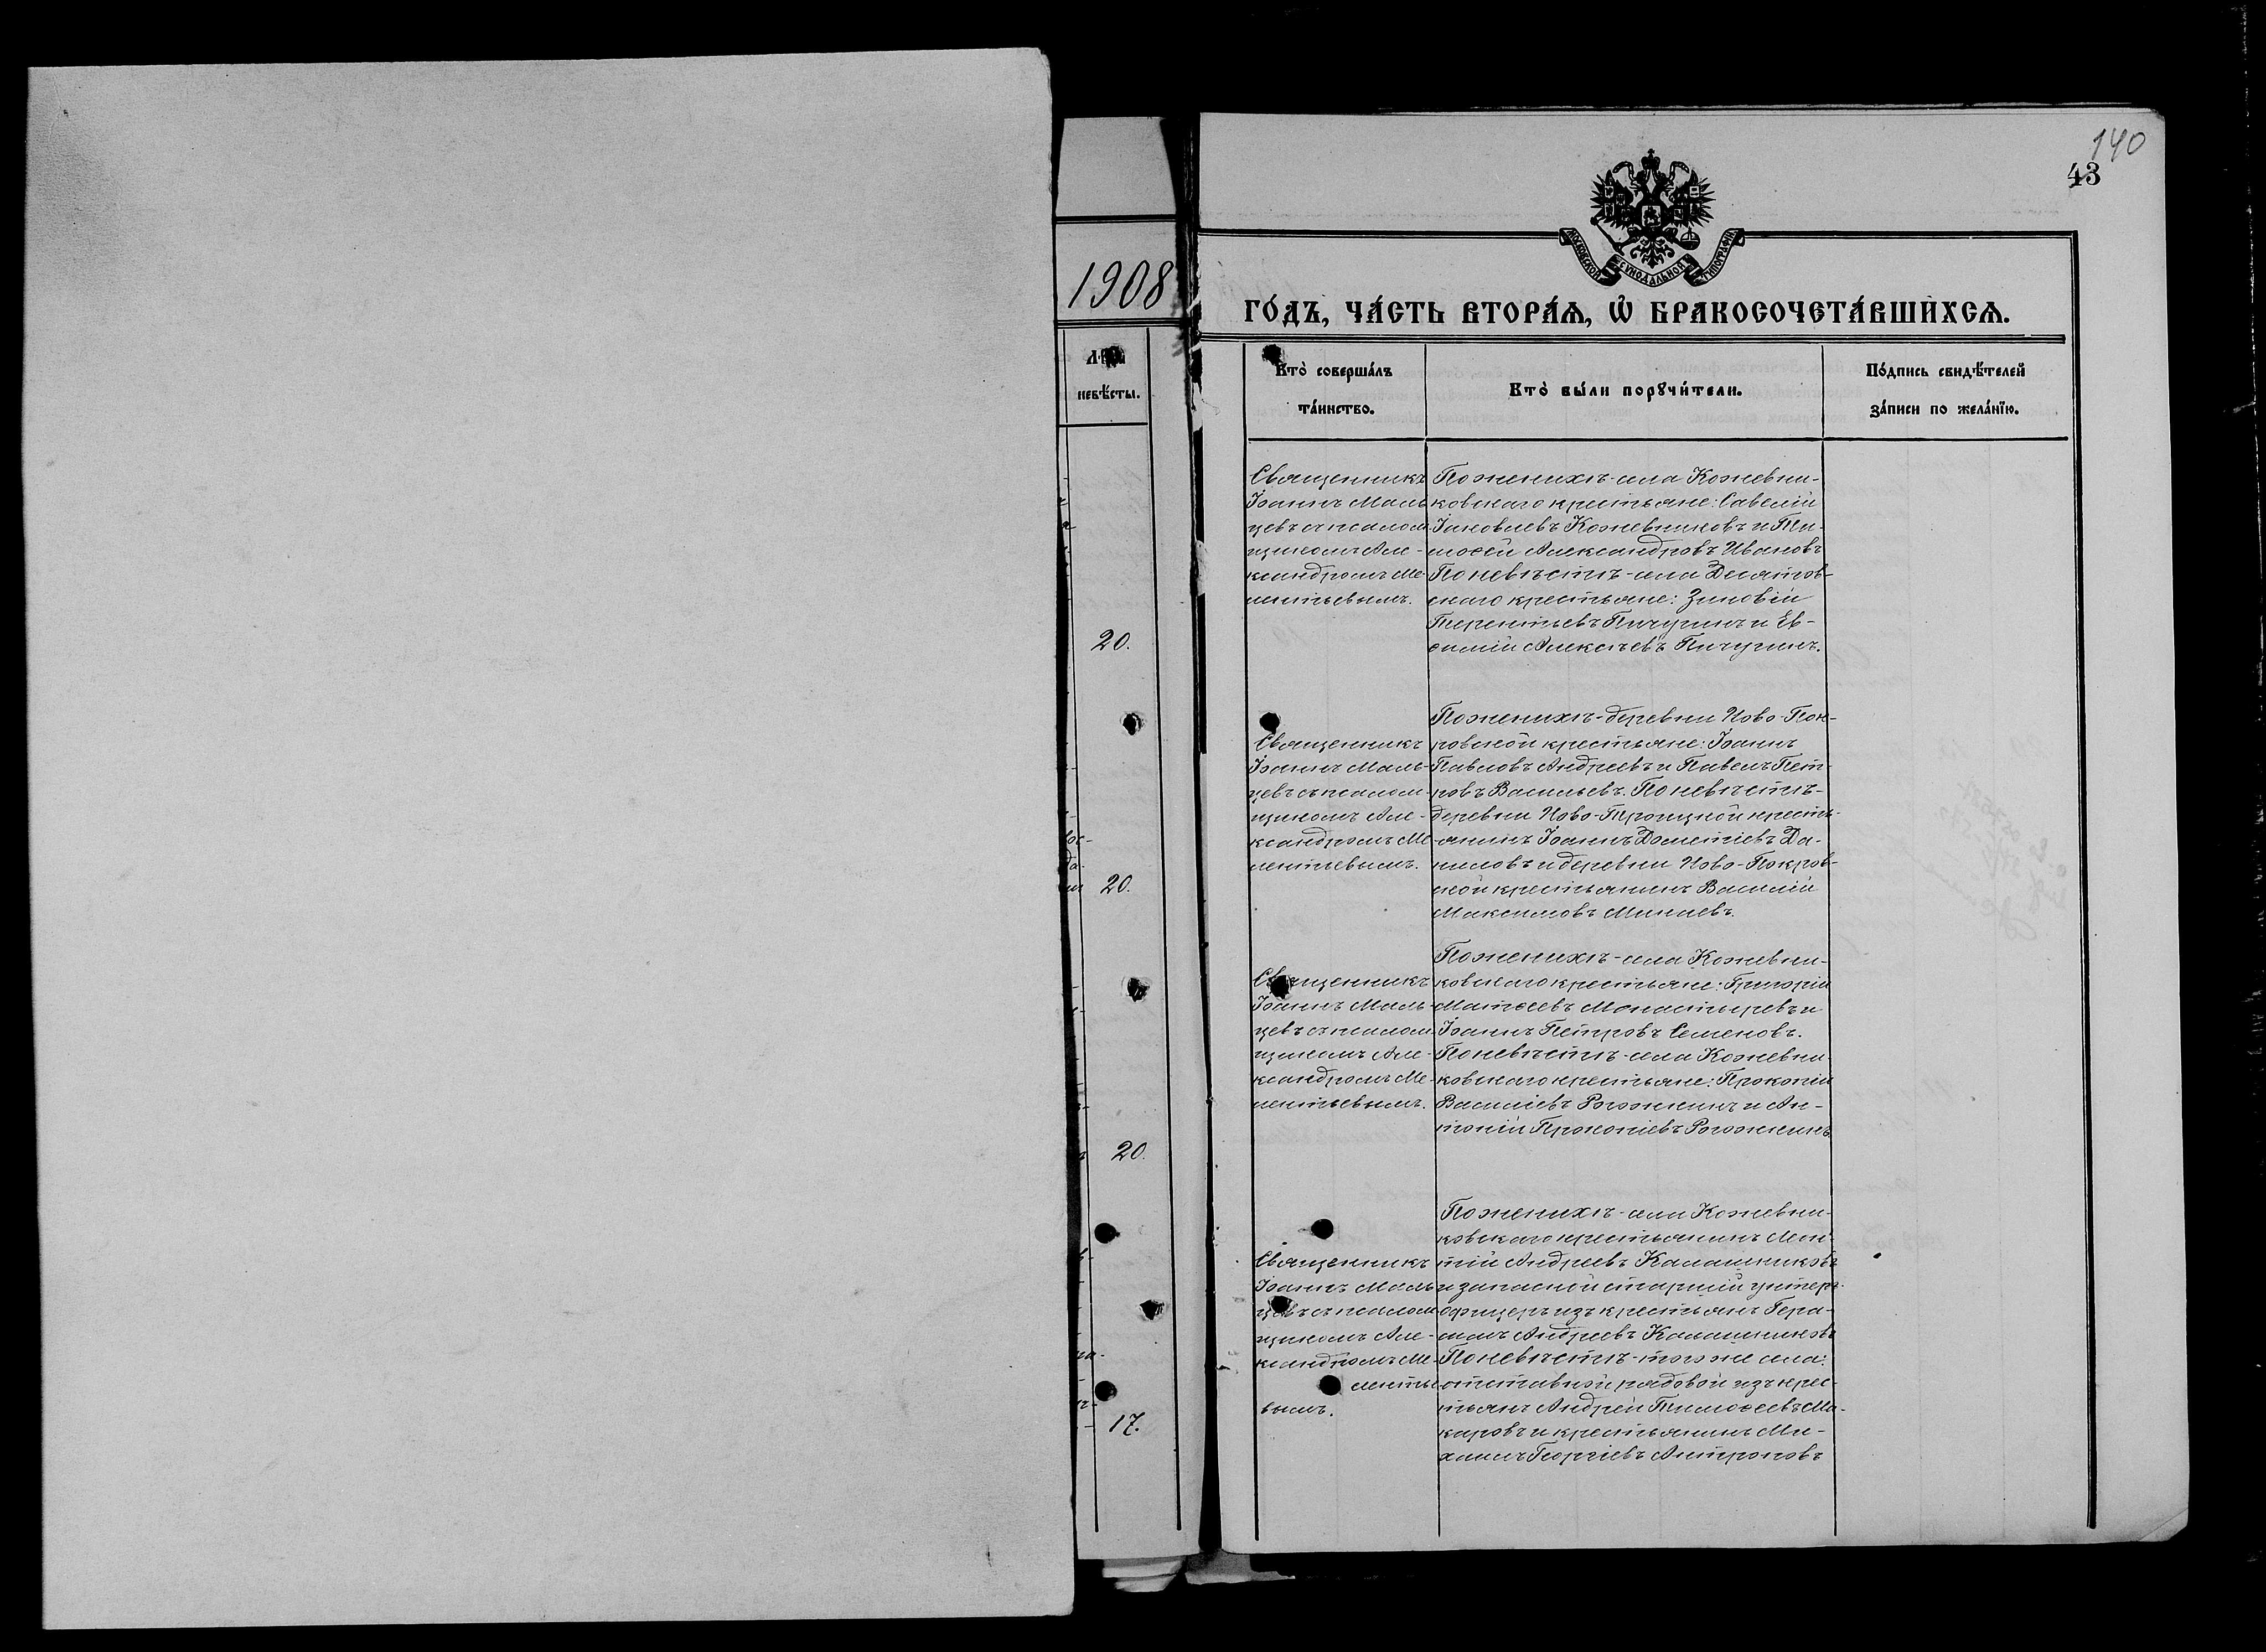 140
43
МОСКОВСКОЙ СѴНОДАЛЬНОЙ ТИПОГРАФІИ
1908
ГО́ДЪ, ЧА́СТЬ ВТОРА́Ѧ, Ѡ҆ БРАКОСОЧЕТА́ВШИХСѦ.
невѣ́сты.
Кто̀ соверша́лъ
та́инство.
Кто̀ бы́ли порꙋчи́тели.
По́дпись свидѣ́телей
за́писи по жела́нїю.
20.
20.
20.
17.
Священникъ
Іоаннъ Маль-
цевъ съ псалом-
щикомъ Але-
ксандромъ Ме-
лентьевымъ.
По женихѣ - села Кожевни-
ковскаго крестьяне: Савелій
Іаковлевъ Кожевниковъ и Ти-
моѳей Александровъ Ивановъ
По невѣстѣ - села Десятов-
скаго крестьяне: Зиновій
Терентьевъ Пичугинъ и Ев-
ѳимій Алексѣевъ Пичугинъ.
Священникъ
Іоаннъ Маль-
цевъ съ псалом-
щикомъ Але-
ксандромъ Ме-
лентьевымъ.
По женихѣ - деревни Ново-Пок-
ровской крестьяне: Іоаннъ
Павловъ Андреевъ и Павелъ Пет-
ровъ Васильевъ. По невѣстѣ -
деревни Ново-Троицкой кресть-
янинъ Іоаннъ Дометіевъ Да-
ниловъ и деревни Ново-Покров-
ской крестьянинъ Василій
Максимовъ Минаевъ.
Священникъ
Іоаннъ Маль-
цевъ съ псалом-
щикомъ Але-
ксандромъ Ме-
лентьевымъ.
По женихѣ - села Кожевни-
ковскаго крестьяне: Григорій
Матѳеевъ Монастыревъ и
Іоаннъ Петровъ Семеновъ.
По невѣстѣ - села Кожевни-
ковскаго крестьяне: Прокопій
Василіевъ Рогожкинъ и Ан-
тоній Прокопіевъ Рогожкинъ
Священникъ
Іоаннъ Маль-
цевъ съ псалом-
щикомъ Але-
ксандромъ Ме-
ленть-
вымъ.
По женихѣ - села Кожевни-
ковскаго крестьянинъ
Андреевъ Калашниковъ
и запасной старшій унтеръ-
офицеръ изъ крестьянъ Гера-
симъ Андреевъ Калашниковъ
По невѣстѣ - того же села:
отставной рядовой изъ крес-
тьянъ Андрей Тимоѳеевъ Ма-
каровъ и крестьянинъ Ми-
хаилъ Георгіевъ Антроповъ